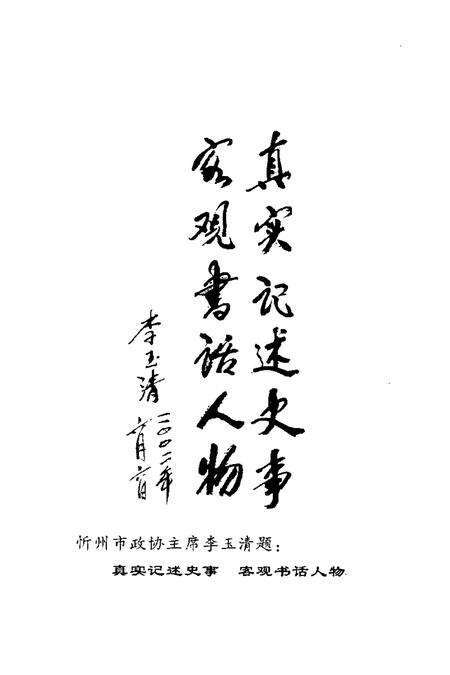 真实记述史事
客观书话人物
李玉清
二〇〇二年
六月六日
忻州市政协主席李玉清题：
真实记述史事 客观书话人物